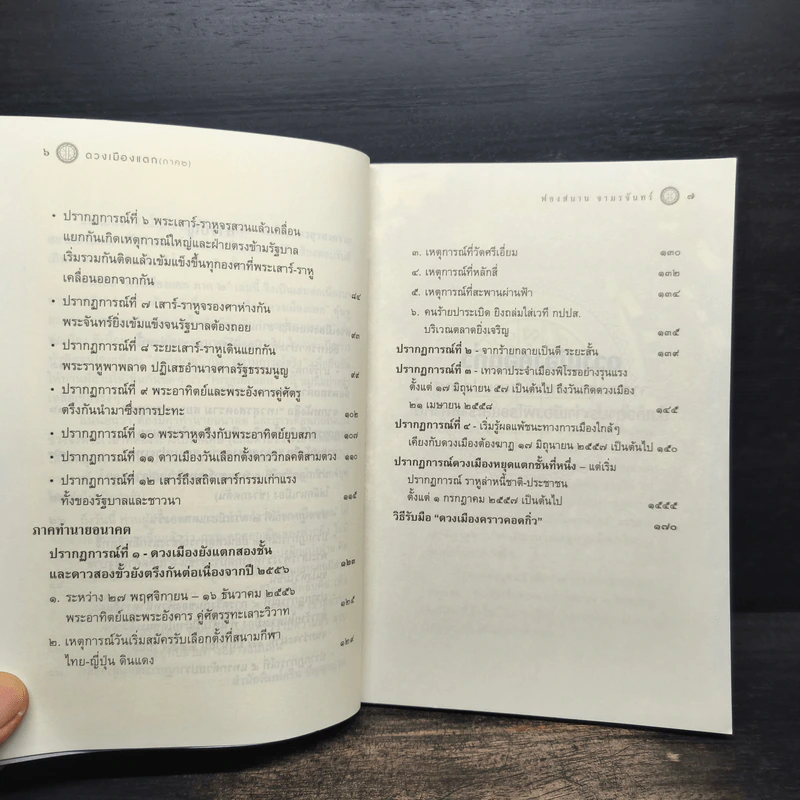 ๖ ดวงเมืองแตก(ภาค๒)
• ปรากฏการณ์ที่ ๖ พระเสาร์-ราหูจรสวนแล้วเคลื่อน
แยกกันเกิดเหตุการณ์ใหญ่และฝ่ายตรงข้ามรัฐบาล
เริ่มรวมกันติดแล้วเข้มแข็งขึ้นทุกองศาที่พระเสาร์-ราหู
เคลื่อนออกจากกัน ๘๔
• ปรากฏการณ์ที่ ๗ เสาร์-ราหูจรองศาห่างกัน
พระจันทร์ยิ่งเข้มแข็งจนรัฐบาลต้องถอย ๙๓
• ปรากฏการณ์ที่ ๘ ระยะเสาร์-ราหูเดินแยกกัน
พระราหูพาพลาด ปฏิเสธอำนาจศาลรัฐธรรมนูญ ๙๙
• ปรากฏการณ์ที่ ๙ พระอาทิตย์และพระอังคารคู่ศัตรู
ตรึงกันนำมาซึ่งการปะทะ ๑๐๒
• ปรากฏการณ์ที่ ๑๐ พระราหูตรึงกับพระอาทิตย์ยุบสภา ๑๐๗
• ปรากฏการณ์ที่ ๑๑ ดาวเมืองวันเลือกตั้งดาววิกลคติสามดวง ๑๑๐
• ปรากฏการณ์ที่ ๑๒ เสาร์ถึงสถิตเสาร์กรรมเก่าแรง
ทั้งของรัฐบาลและชาวนา ๑๑๕
ภาคทำนายอนาคต
ปรากฏการณ์ที่ ๑ - ดวงเมืองยังแตกสองชั้น
และดาวสองขั้วยังตรึงกันต่อเนื่องจากปี ๒๕๕๖ ๑๒๓
๑. ระหว่าง ๒๗ พฤศจิกายน – ๑๖ ธันวาคม ๒๕๕๖
พระอาทิตย์และพระอังคาร คู่ศัตรูทะเลาะวิวาท ๑๒๕
๒. เหตุการณ์วันเริ่มสมัครรับเลือกตั้งที่สนามกีฬา
ไทย-ญี่ปุ่น ดินแดง ๑๒๙
ฟองสนาน จามรจันทร์ ๗
๓. เหตุการณ์ที่วัดศรีเอี่ยม ๑๓๐
๔. เหตุการณ์ที่หลักสี่ ๑๓๒
๕. เหตุการณ์ที่สะพานผ่านฟ้า ๑๓๔
๖. คนร้ายปาระเบิด ยิงถล่มใส่เวที กปปส.
บริเวณตลาดยิ่งเจริญ ๑๓๕
ปรากฏการณ์ที่ ๒ - จากร้ายกลายเป็นดี ระยะสั้น ๑๓๙
ปรากฏการณ์ที่ ๓ - เทวดาประจำเมืองพิโรธอย่างรุนแรง
ตั้งแต่ ๑๗ มิถุนายน ๕๗ เป็นต้นไป ถึงวันเกิดดวงเมือง
๒๑ เมษายน ๒๕๕๘ ๑๔๕
ปรากฏการณ์ที่ ๔ - เริ่มรู้ผลแพ้ชนะทางการเมืองใกล้ๆ
เคียงกับดวงเมืองต้องฆาฏ ๑๗ มิถุนายน ๒๕๕๗ เป็นต้นไป ๑๕๐
ปรากฏการณ์ดวงเมืองหยุดแตกชั้นที่หนึ่ง – แต่เริ่ม
ปรากฏการณ์ ราหูล่าหนี้ชาติ-ประชาชน
ตั้งแต่ ๑ กรกฎาคม ๒๕๕๗ เป็นต้นไป ๑๕๕๕
วิธีรับมือ “ดวงเมืองคราวคอดกิ่ว” ๑๗๐